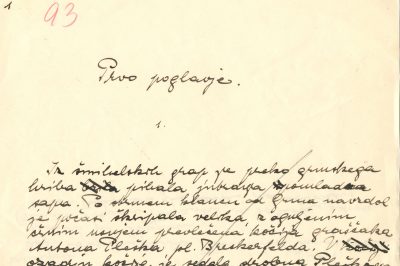 1
93
Prvo poglavje.
1.
Iz šmihelskih grap je preko grmskega
hriba pihala jutranja spomladna
sapa. Po strmem klancu od Grma navzdol
je počasi škripala velika, z oguljenim
črnim usnjem prevlečena kočija graščaka
Antona Pleška pl. Breckerfelda. V
ozadju kočije je sedela drobna